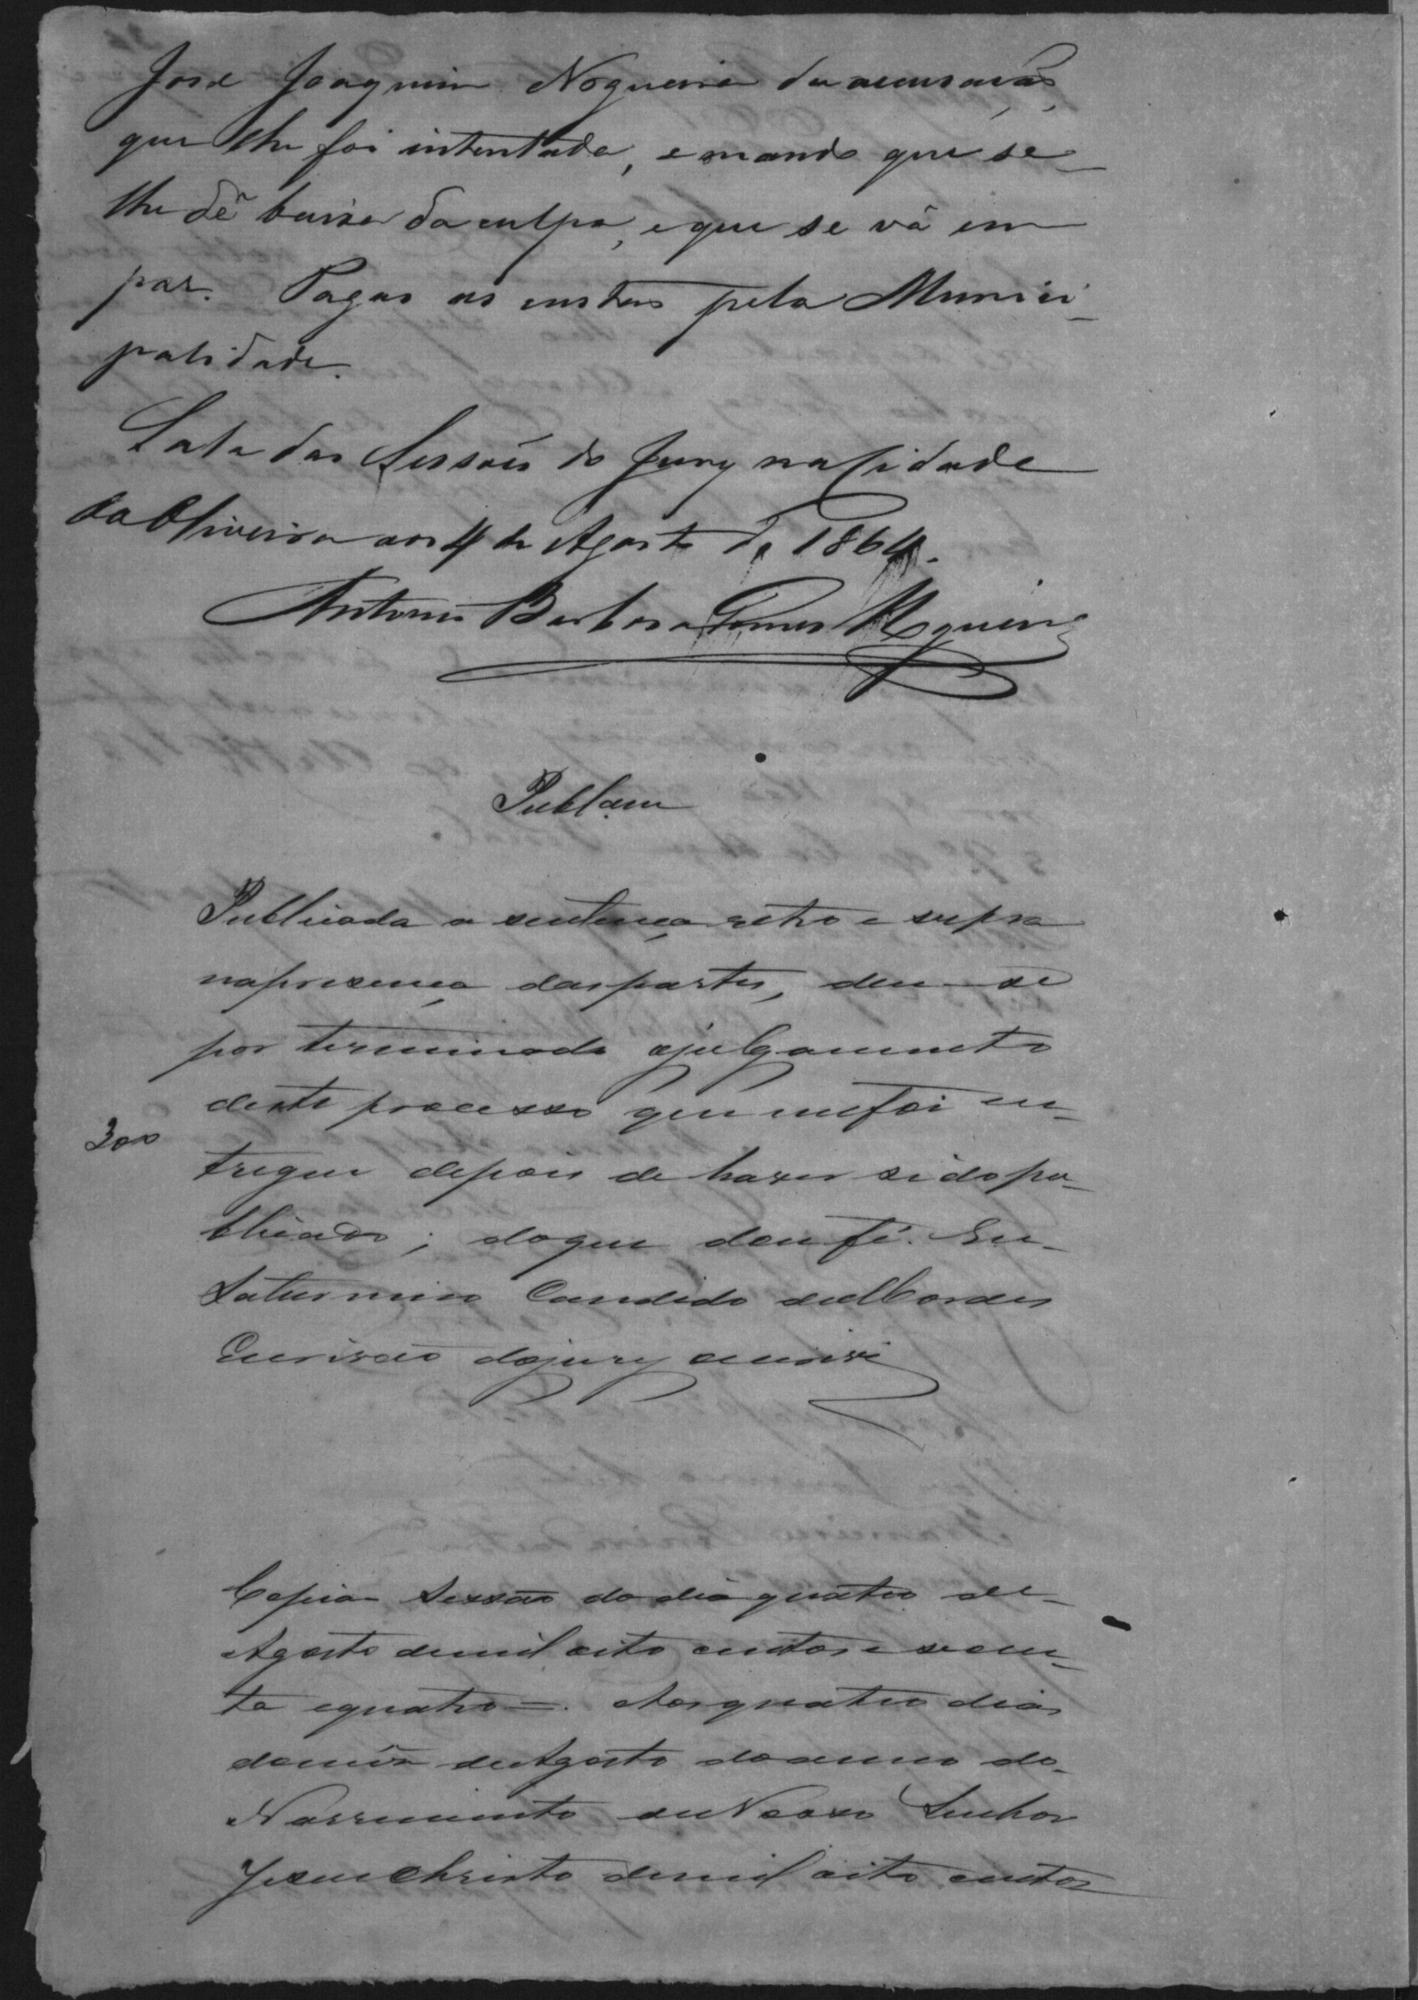 José Joaquim Nogueira da acusação,
que lhe foi intentada, e mando que se
lhe dê baixa da culpa, e que se vá em
paz. Pagas as custas pela Munici-
palidade.
Sala das Sessões do Jury na Cidade
da Oliveira aos 4 de Agosto de 1864.
Antonio Barbosa Gomes Nogueira
Publam
Publicada a sentença retro e supra
na presença das partes, deu-se
por terminado o julgamento
deste processo que me foi en-
300
tregue depois de haver sido pu-
blicado; do que dou fé. Eu
Saturnino Candido de
Escrivão do jury escrevi
Copia Sessão do dia quatro de
Agosto de mil oito centos e secen-
ta e quatro =. Aos quatro dias
do mês de Agosto do anno do
Nascimento de Nosso Senhor
Jesus Christo de mil oito centos